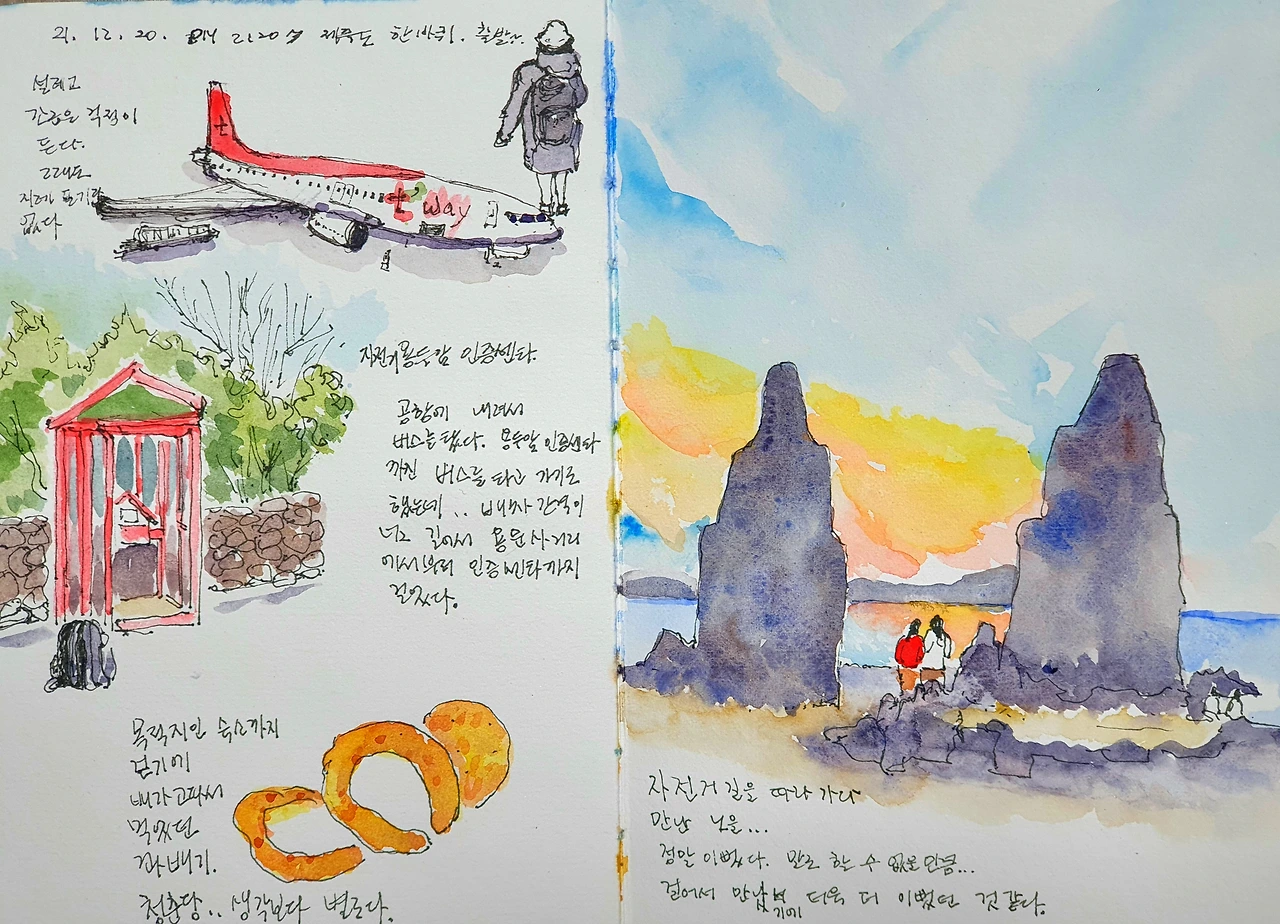 21. 12. 20. 제주도 한바퀴. 출발.
설레고
걱정이
든다.
그래도
지레 포기란
없다
t
t'way
자전거 용두암 인증센타.
공항에 내려서
버스를 탔다. 용두암 인증센타
까진 버스를 타고 가기로
했는데.. 배차 간격이
너무 길어서 용문사거리
에서부터 인증센타까지
걸었다.
목적지인 숙소까지
걷기에
배가 고파서
먹었던
꽈배기.
청춘당.. 생각보다 별로다.
자전거 길을 따라 가다
만난 노을...
정말 이뻤다. 말로 할 수 없을 만큼...
걸어서 만났기에 더욱 더 이뻤던 것 같다.